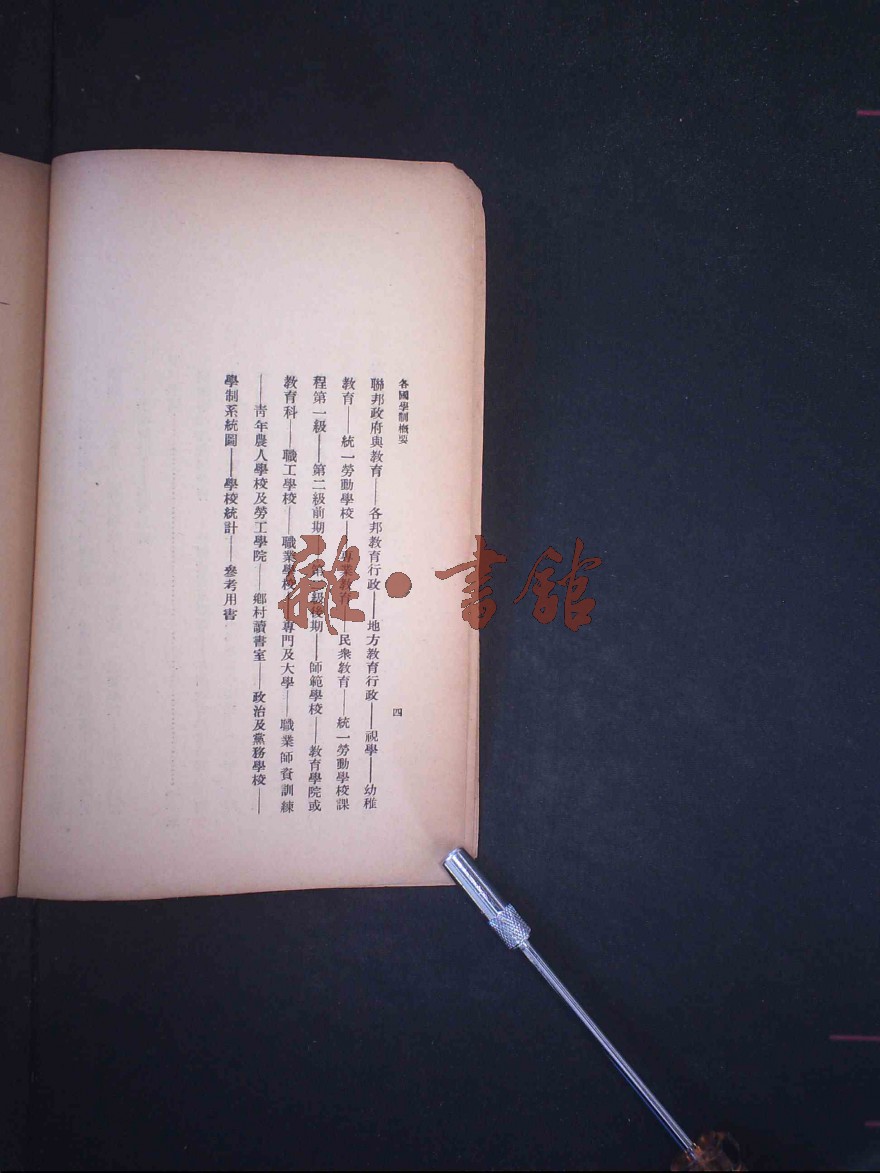 各國學制概要
四
聯邦政府與教育——各邦教育行政——地方教育行政——視學——幼稚
教育——統一勞動學校——專業教育——民衆教育——統一勞動學校課
程第一級——第二級前期——第二級後期——師範學校——教育學院或
教育科——職工學校——職業學校——專門及大學——職業師資訓練
——青年農人學校及勞工學院——鄉村讀書室——政治及黨務學校——
學制系統圖——學校統計——參考用書
雜·書館